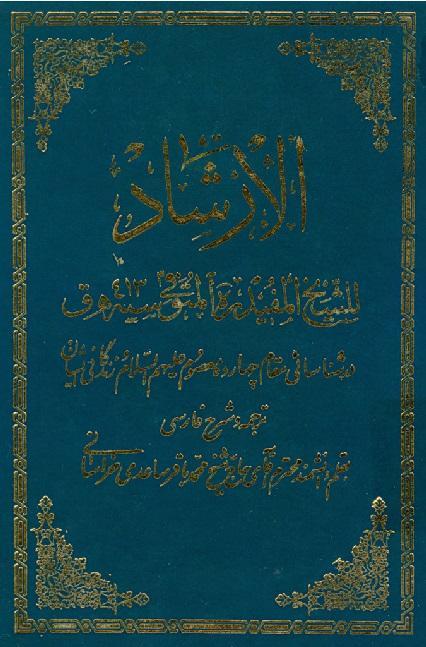 الإرشاد
للشيخ المفید ره المتوفی سنه ۴۱۳ ق
در شناسائی مقام چهارده معصوم علیهم السلام و زندگانی ایشان
ترجمه و شرح فارسی
بقلم دانشمند محترم آقای حاج شیخ محمد باقر ساعدی خراسانی